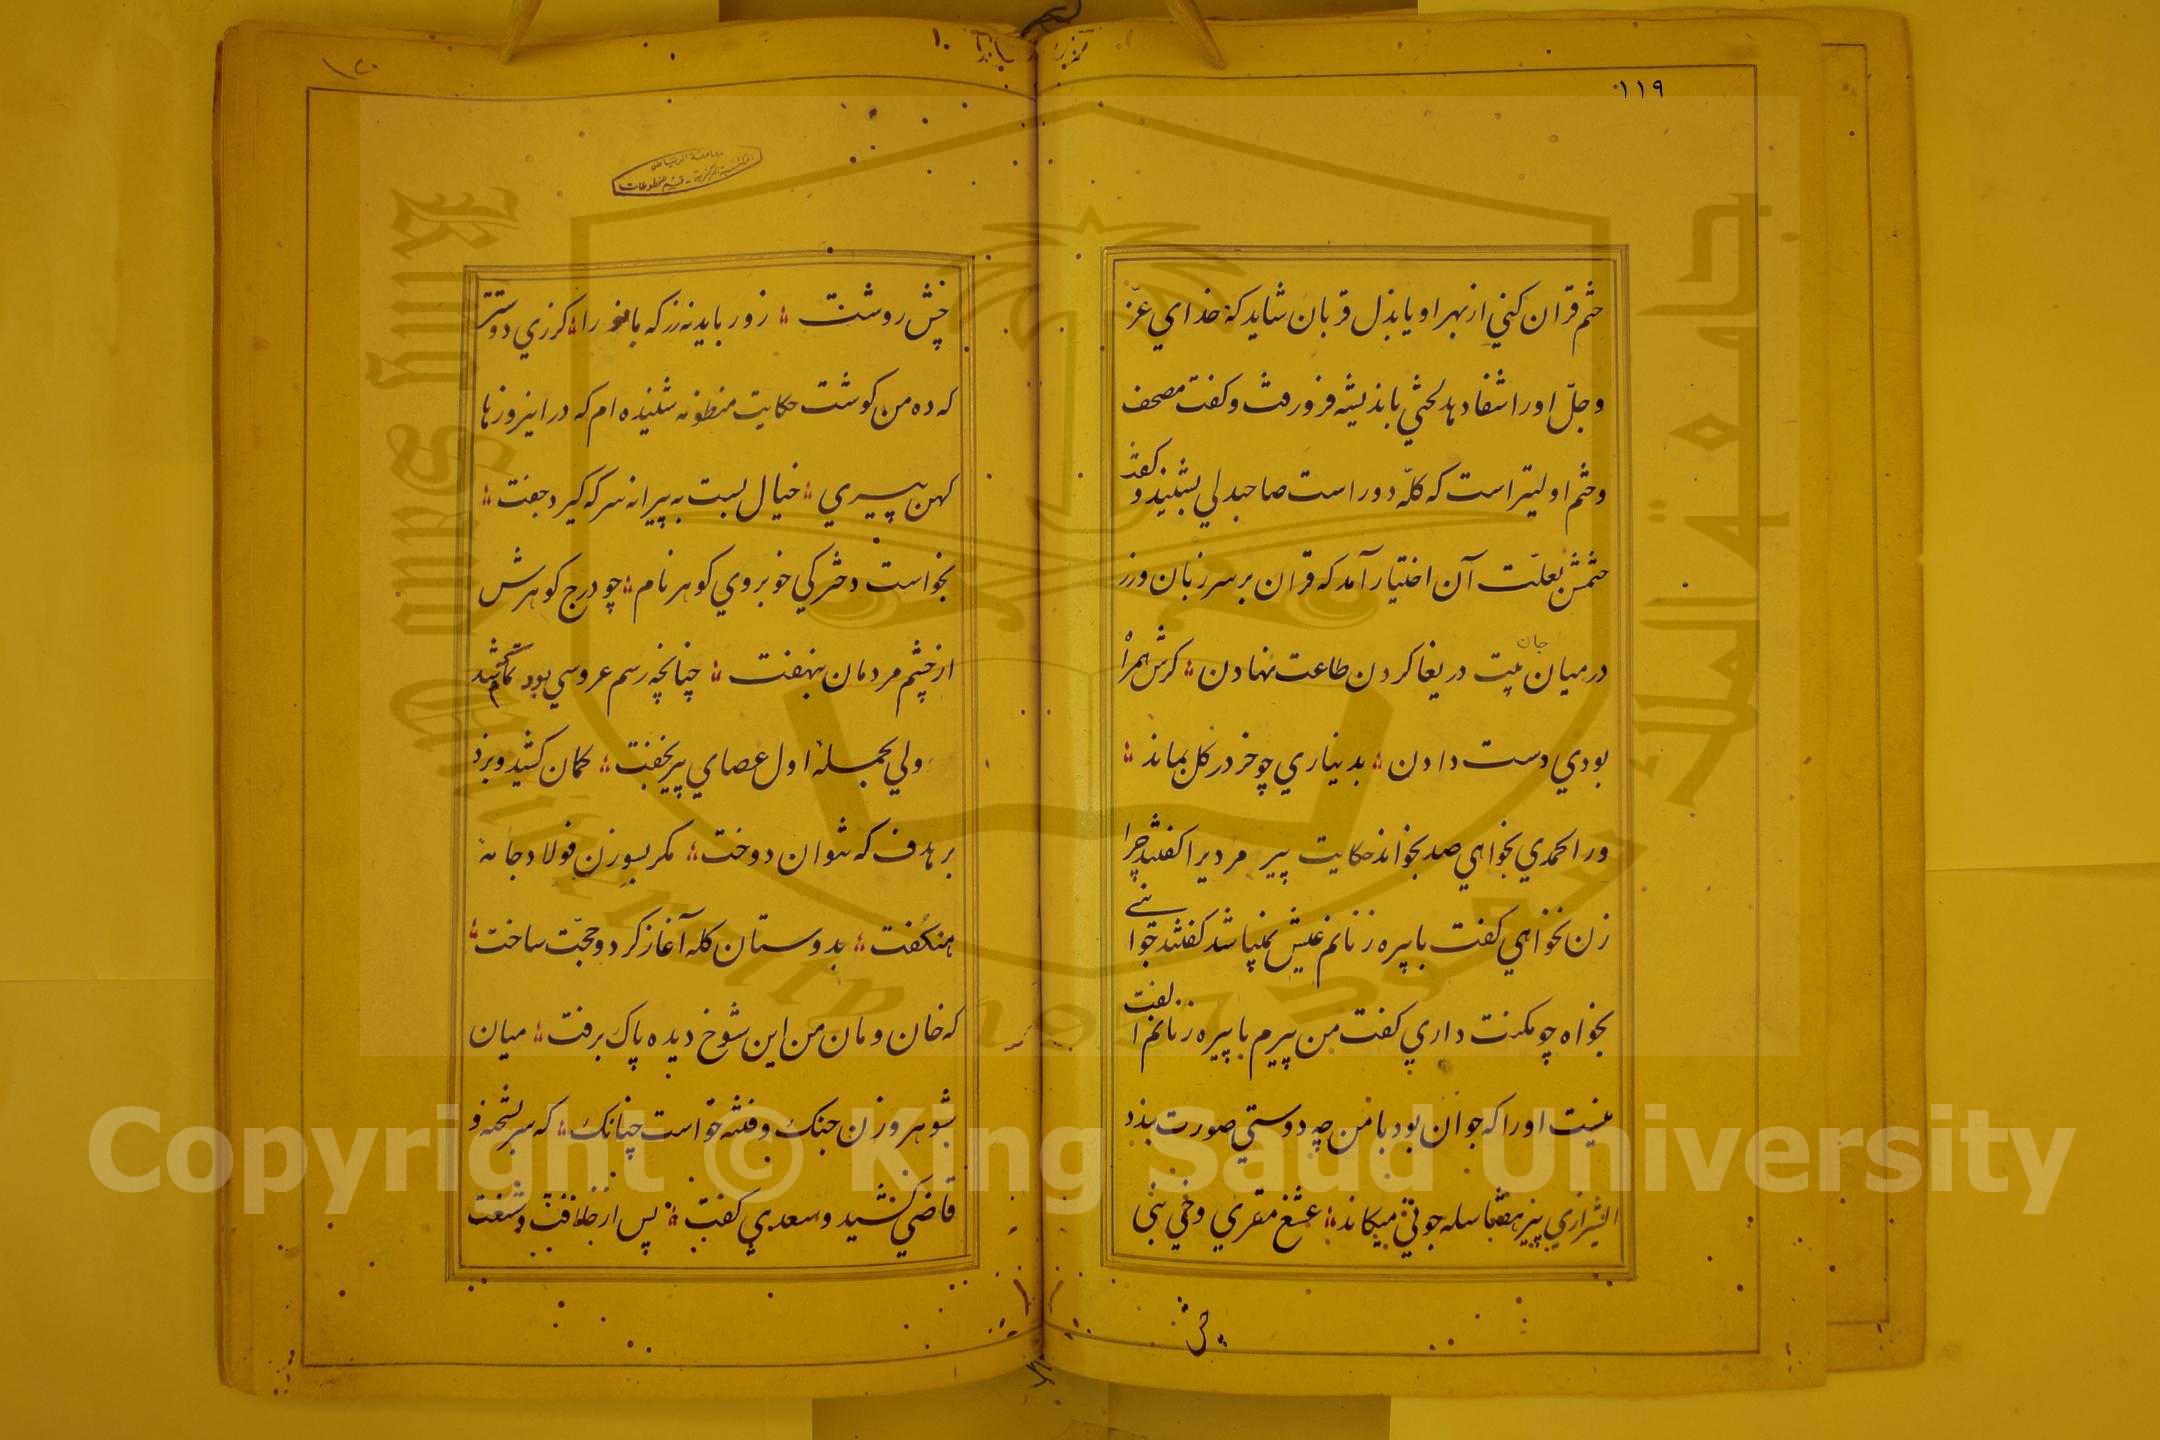 ١١٩
ختم قران کني از بهر او یا بذل قربان شاید که خداي عزّ
وجلّ او را شفا دهد لختي باندیشه فرو رفت و گفت مصحف
و ختم اولیتر است که گلّه دور است صاحبدلي بشنید و گفت
ختمش بعلّت آن اختیار آمد که قران بر سر زبان و زر
در میان جان بیت دریغا گردن طاعت نهادن گرش همراه
بودي دست دادن بدیناري چو خر در گل بماند
ور الحمدي بخواهي صد بخواند حکایت پیر مردیرا گفتند چرا
زن نخواهي گفت با پیره زنانم عیش نباشد گفتند جواني
بخواه چو مکنت داري گفت من پیرم با پیره زنانم الفت
نیست او را که جوان بود با من چه دوستي صورت بندد
الشیرازي پیر هفتاسله جوني میکند
چش روشت زور باید نه زر که بانو را گزري دوستر
که ده من گوشت حکایت منظومه شنیده ام که در اینروزها
کهن پیري خیال بست به پیرانه سر که گیرد جفت
بخواست دخترکي خوبروي گوهر نام چو درج گوهرش
از چشم مردمان بنهفت چنانچه رسم عروسي بود تماشد
ولي بحمله اول عصاي پیر بخفت کمان کشید و نزد
بر هدف که نتوان دوخت مگر بسوزن فولاد جامه
هنگفت بدوستان گله آغاز کرد و حجّت ساخت
که خان و مان من این شوخ دیده پاک برفت میان
شوهر و زن جنگ و فتنه خواست چنانک که سر بشحنه و
قاضي کشید و سعدي گفت پس از خلافت و شنعت
Copyright © King Saud University